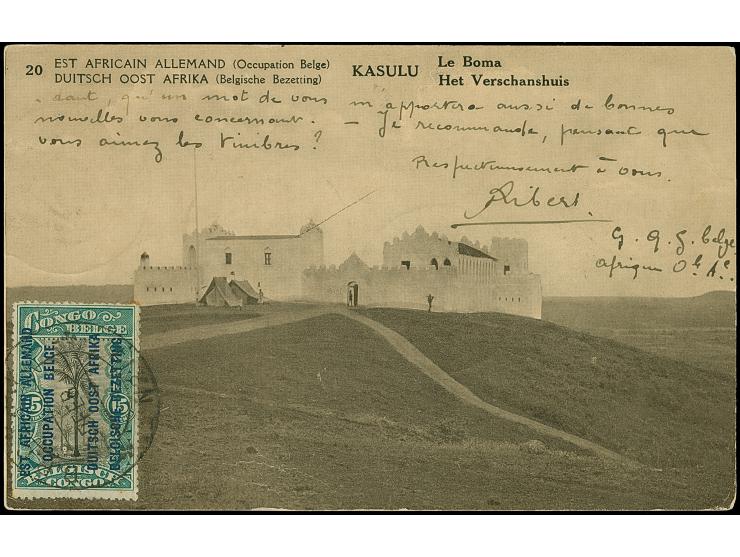 20 EST AFRICAIN ALLEMAND (Occupation Belge)
DUITSCH OOST AFRIKA (Belgische Bezetting)
KASULU Le Boma
Het Verschanshuis
qu'un mot de vous m'apportera aussi de bonnes
nouvelles vous concernant. - Je recommande, pensant que
vous aimez les timbres?
Respectueusement à vous.
Ribert.
G. Q. G. belge
Afrique
CONGO BELGE
EST AFRICAIN ALLEMAND
OCCUPATION BELGE.
DUITSCH OOST AFRIKA
BELGISCHE BEZETTING.
5
BELGISCH
CONGO